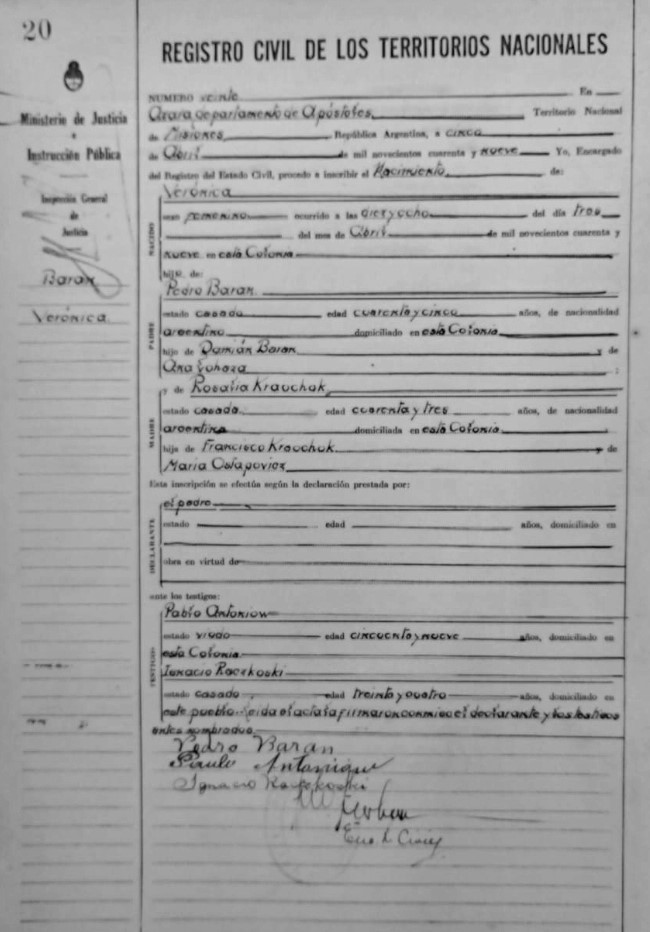 20
REGISTRO CIVIL DE LOS TERRITORIOS NACIONALES
Ministerio de Justicia
e
Instrucción Pública
Inspección General
de
Justicia
Baran
Verónica
NUMERO veinte En
Azara departamento de Apóstoles, Territorio Nacional
de Misiones República Argentina, a cinco
de Abril de mil novecientos cuarenta y nueve Yo, Encargado
del Registro del Estado Civil, procedo a inscribir el Nacimiento de:
Verónica
NACIDO
sexo femenino ocurrido a las dieryocho del día tres
del mes de Abril de mil novecientos cuarenta y
nueve en esta Colonia
hija de:
Pedro Baran
PADRE
estado casado edad cuarenta y cinco años, de nacionalidad
argentino domiciliado en esta Colonia
hijo de Damián Baran y de
Ana ;
y de Rosalia Krauchuk
MADRE
estado casada edad cuarenta y tres años, de nacionalidad
argentina domiciliada en esta Colonia
hija de Francisco Krauchuk y de
Maria Ostapovicz
Esta inscripción se efectúa según la declaración prestada por:
el padre
DECLARANTE
estado edad años, domiciliado en
obra en virtud de
ante los testigos:
Pablo Antoniow
TESTIGOS
estado viudo edad cincuenta y nueve años, domiciliado en
esta Colonia
Ignacio Raczkoski
estado casado edad treinta y cuatro años, domiciliado en
este pueblo. Leida el acta la firmaron conmigo el declarante y los testigos
antes nombrados
Pedro Baran
Paulo
Ignacio Raczkoski